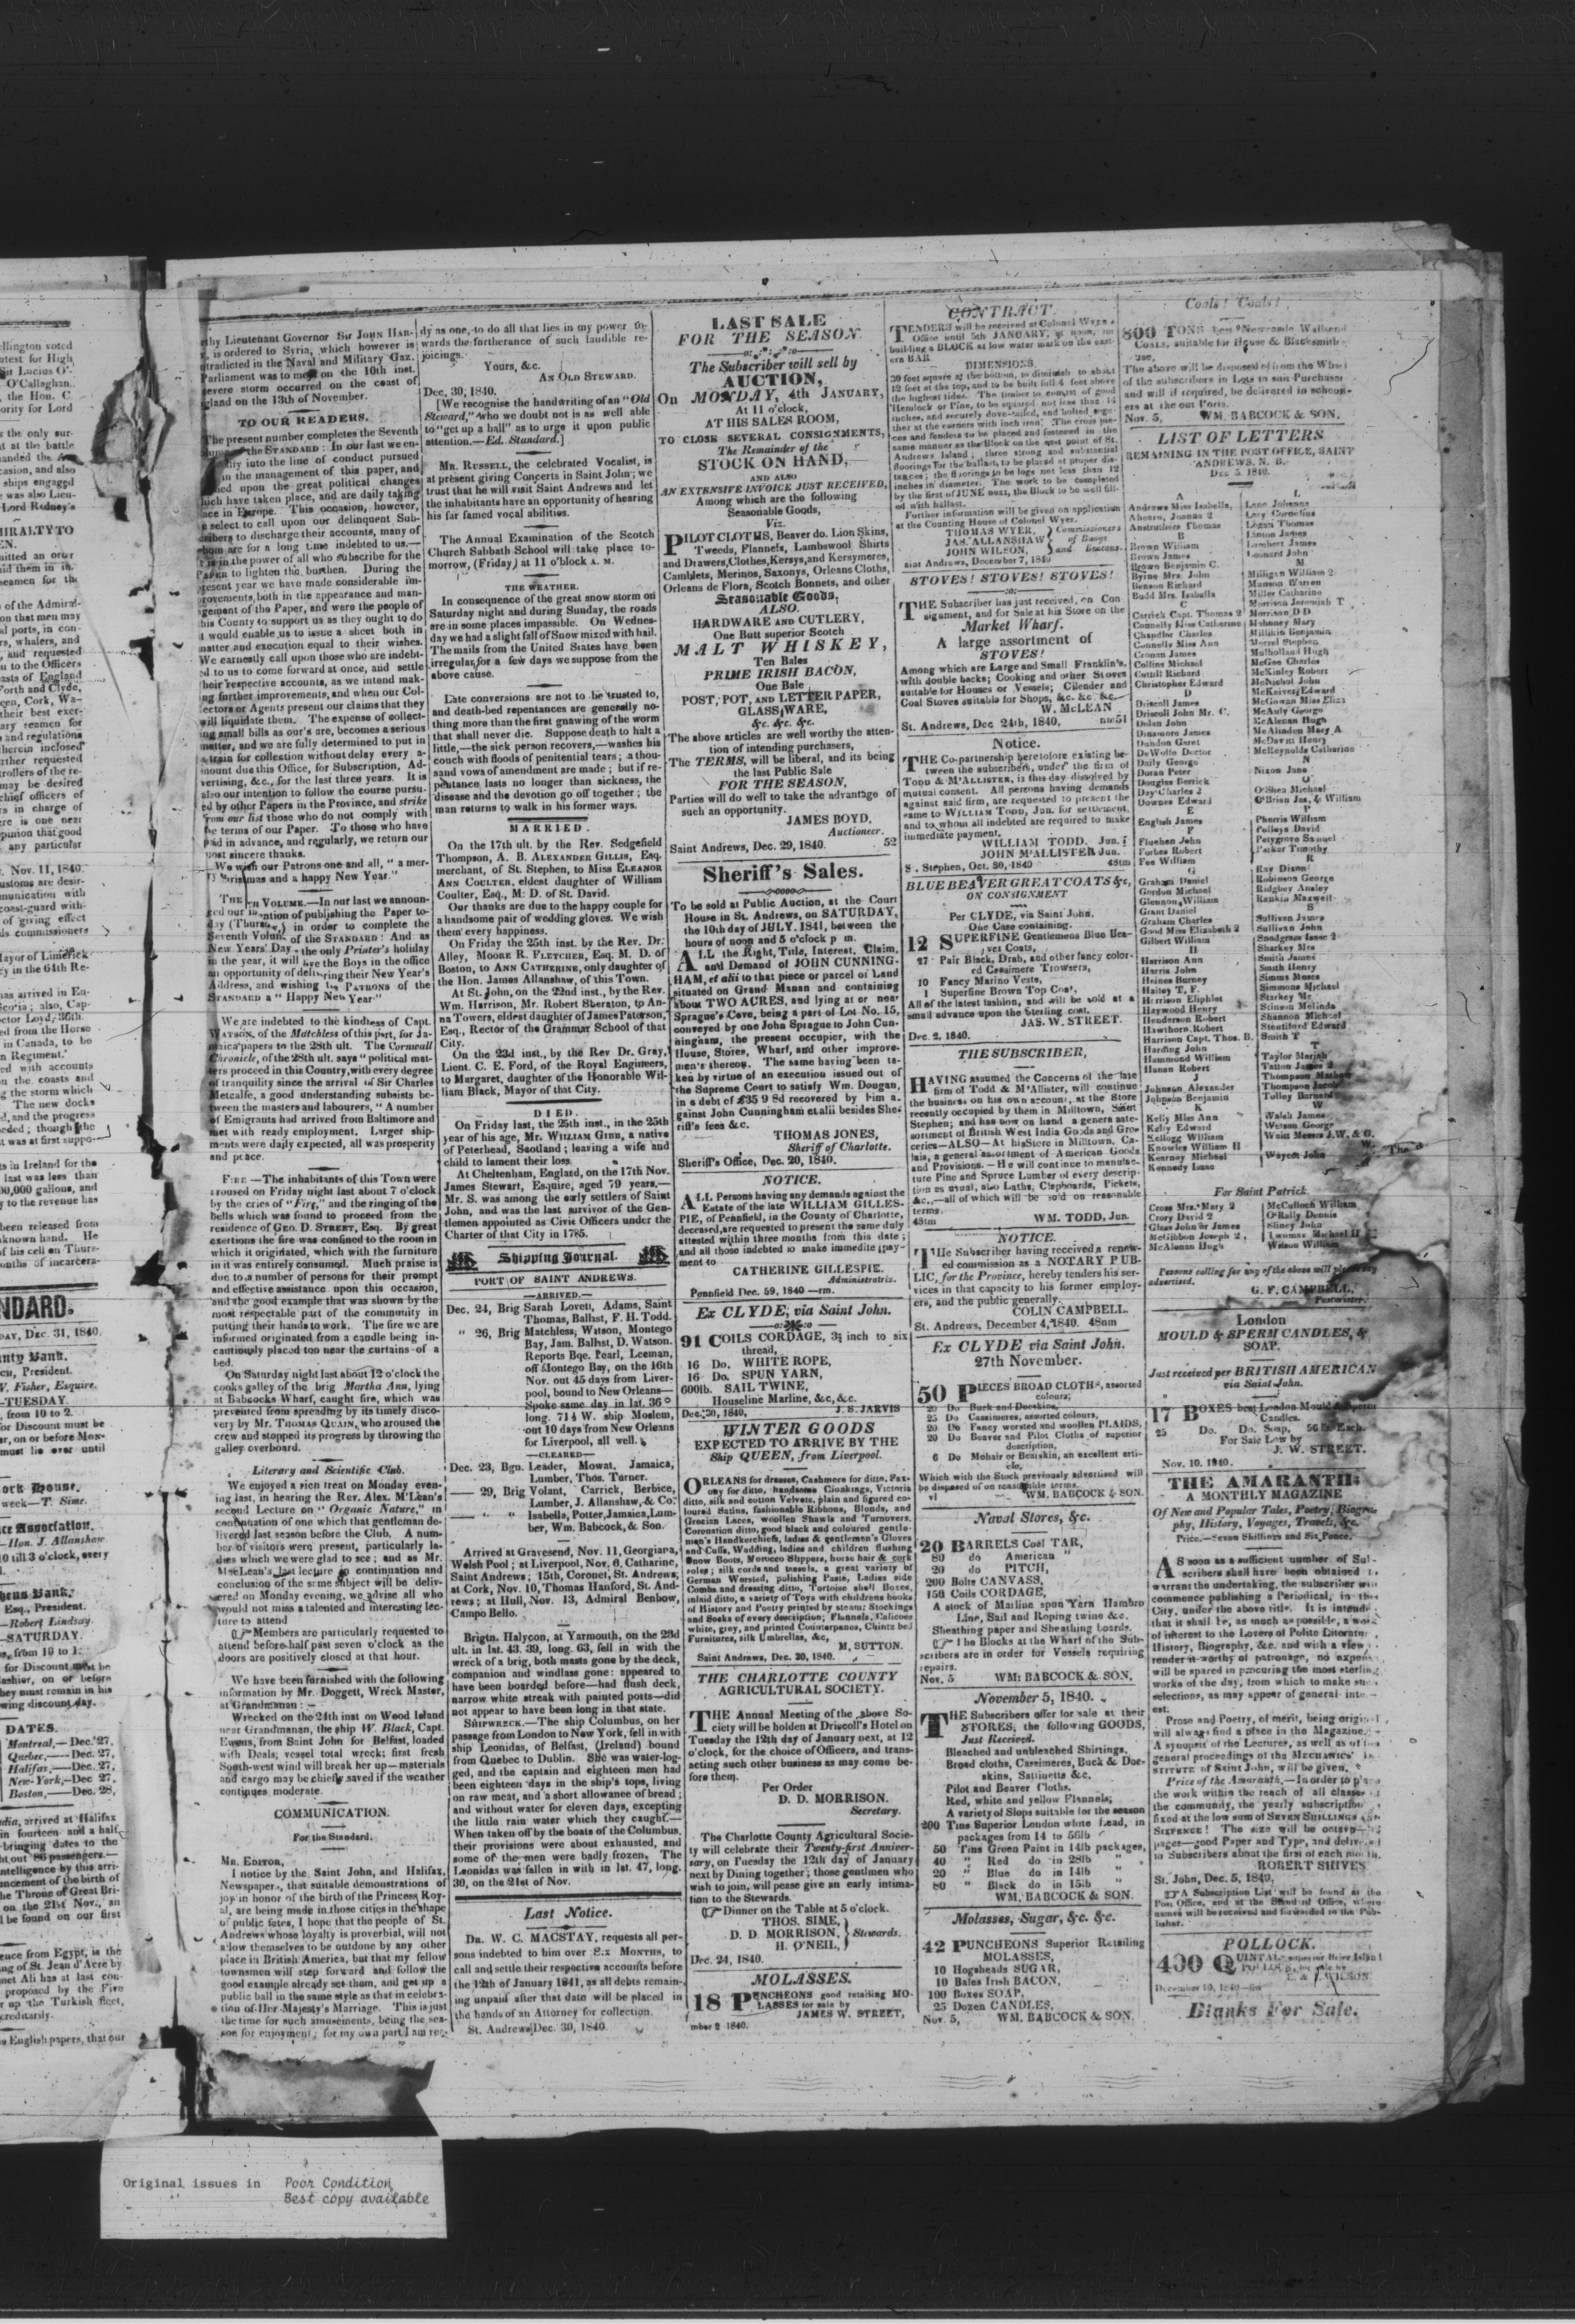 thy Lieutenant Governor Sir JOHN HAR-
is ordered to Syria, which however is
ntradicted in the Naval and Military Gaz.
Parliament was to meet on the 10th inst.
severe storm occurred on the coast of
gland on the 13th of November.
TO OUR READERS.
The present number completes the Seventh
the STANDARD: In our last we en-
into the line of conduct pursued
in the management of this paper, and
upon the great political changes
which have taken place, and are daily taking
ace in Europe. This occasion, however,
select to call upon our delinquent Sub-
scribers to discharge their accounts, many of
whom are for a long time indebted to us.—
is in the power of all who subscribe for the
PAPER to lighten the burthen. During the
present year we have made considerable im-
provements, both in the appearance and man-
gement of the Paper, and were the people of
this County to support us as they ought to do
it would enable us to issue a sheet both in
matter and execution equal to their wishes.
We earnestly call upon those who are indebt-
ed to us to come forward at once, and settle
their respective accounts, as we intend mak-
ing further improvements, and when our Col-
lectors or Agents present our claims that they
will liquidate them. The expense of collect-
ing small bills as our's are, becomes a serious
matter, and we are fully determined to put in
a train for collection without delay every a-
mount due this Office, for Subscription, Ad-
vertising, &c., for the last three years. It is
also our intention to follow the course pursu-
ed by other Papers in the Province, and strike
from our list those who do not comply with
the terms of our Paper. To those who have
paid in advance, and regularly, we return our
most sincere thanks.
We wish our Patrons one and all, "a mer-
ry Christmas and a happy New Year."
VOLUME.—In our last we announ-
ced our intention of publishing the Paper to-
day in order to complete the
Seventh Volume of the STANDARD: And as
New Years' Day is the only Printer's holiday
in the year, it will give the Boys in the office
an opportunity of delivering their New Year's
Address, and wishing the PATRONS of the
STANDARD a "Happy New Year."
We are indebted to the kindness of Capt.
WATSON, of the Matchless of this port, for Ja-
maica papers to the 28th ult. The Cornwall
Chronicle, of the 28th ult. says "political mat-
ters proceed in this Country, with every degree
of tranquility since the arrival of Sir Charles
Metcalfe, a good understanding subsists be-
tween the masters and labourers, "A number
of Emigrants had arrived from Baltimore and
met with ready employment. Larger ship-
ments were daily expected, all was prosperity
and peace.
FIRE.—The inhabitants of this Town were
aroused on Friday night last about 7 o'clock
by the cries of "Fire," and the ringing of the
bells which was found to proceed from the
residence of GEO. D. STREET, Esq. By great
exertions the fire was confined to the room in
which it originated, which with the furniture
in it was entirely consumed. Much praise is
due to a number of persons for their prompt
and effective assistance upon this occasion,
and the good example that was shown by the
most respectable part of the community in
putting their hands to work. The fire we are
informed originated from a candle being in-
cautiously placed too near the curtains of a
bed.
On Saturday night last about 12 o'clock the
cooks galley of the brig Martha Ann, lying
at Babcocks Wharf, caught fire, which was
prevented from spreading by its timely disco-
very by Mr. THOMAS QUAIN, who aroused the
crew and stopped its progress by throwing the
galley overboard.
Literary and Scientific Club.
We enjoyed a rich treat on Monday even-
ing last, in hearing the Rev. Alex. M'Lean's
second Lecture on "Organic Nature," in
continuation of one which that gentleman de-
livered last season before the Club. A num-
ber of visitors were present, particularly la-
dies which we were glad to see; and as Mr.
MacLean's last lecture in continuation and
conclusion of the same subject will be deliv-
ered on Monday evening, we advise all who
would not miss a talented and interesting lec-
ture to attend
Members are particularly requested to
attend before half past seven o'clock as the
doors are positively closed at that hour.
We have been furnished with the following
information by Mr. Doggett, Wreck Master,
at Grandmanan:—
Wrecked on the 24th inst on Wood Island
near Grandmanan, the ship W. Black, Capt.
Ewens, from Saint John for Belfast, loaded
with Deals; vessel total wreck; first fresh
South-west wind will break her up—materials
and cargo may be chiefly saved if the weather
continues moderate.
COMMUNICATION.
For the Standard.
MR. EDITOR,
I notice by the Saint John, and Halifax,
Newspapers, that suitable demonstrations of
joy in honor of the birth of the Princess Roy-
al, are being made in those cities in the shape
of public fetes, I hope that the people of St.
Andrews whose loyalty is proverbial, will not
allow themselves to be outdone by any other
place in British America, but that my fellow
townsmen will step forward and follow the
good example already set them, and get up a
public ball in the same style as that in celebra-
tion of Her Majesty's Marriage. This is just
the time for such amusements, being the sea-
son for enjoyment; for my own part I am rea-
dy as one, to do all that lies in my power to-
wards the furtherance of such laudible re-
joicings.
Yours, &c.
AN OLD STEWARD.
Dec. 30, 1840.
[We recognise the handwriting of an "Old
Steward," who we doubt not is as well able
to "get up a ball" as to urge it upon public
attention.—Ed. Standard.]
MR. RUSSELL, the celebrated Vocalist, is
at present giving Concerts in Saint John; we
trust that he will visit Saint Andrews and let
the inhabitants have an opportunity of hearing
his far famed vocal abilities.
The Annual Examination of the Scotch
Church Sabbath School will take place to-
morrow, (Friday) at 11 o'block A. M.
THE WEATHER.
In consequence of the great snow storm on
Saturday night and during Sunday, the roads
are in some places impassible. On Wednes-
day we had a slight fall of Snow mixed with hail.
The mails from the United States have been
irregular for a few days we suppose from the
above cause.
Late conversions are not to be trusted to,
and death-bed repentances are generally no-
thing more than the first gnawing of the worm
that shall never die. Suppose death to halt a
little,—the sick person recovers,—washes his
couch with floods of penitential tears; a thou-
sand vows of amendment are made; but if re-
pentance lasts no longer than sickness, the
disease and the devotion go off together; the
man returns to walk in his former ways.
MARRIED.
On the 17th ult. by the Rev. Sedgefield
Thompson, A. B. ALEXANDER GILLIS, Esq.
merchant, of St. Stephen, to Miss ELEANOR
ANN COULTER, eldest daughter of William
Coulter, Esq., M: D. of St. David.
Our thanks are due to the happy couple for
a handsome pair of wedding gloves. We wish
them every happiness.
On Friday the 25th inst. by the Rev. Dr.
Alley, MOORE R. FLETCHER, Esq. M. D. of
Boston, to ANN CATHERINE, only daughter of
the Hon. James Allanshaw, of this Town.
At St. John, on the 22nd inst., by the Rev.
Wm. Harrison, Mr. Robert Sheraton, to An-
na Towers, eldest daughter of James Paterson,
Esq., Rector of the Grammar School of that
City.
On the 23d inst., by the Rev Dr. Gray,
Lieut. C. E. Ford, of the Royal Engineers,
to Margaret, daughter of the Honorable Wil-
liam Black, Mayor of that City.
DIED.
On Friday last, the 25th inst., in the 25th
year of his age, Mr. WILLIAM GINN, a native
of Peterhead, Scotland; leaving a wife and
child to lament their loss.
At Cheltenham, England, on the 17th Nov.
James Stewart, Esquire, aged 79 years.—
Mr. S. was among the early settlers of Saint
John, and was the last survivor of the Gen-
tlemen appointed as Civic Officers under the
Charter of that City in 1785.
Shipping Journal.
PORT OF SAINT ANDREWS.
—ARRIVED.—
Dec. 24, Brig Sarah Lovett, Adams, Saint
Thomas, Ballast, F. H. Todd.
" 26, Brig Matchless, Watson, Montego
Bay, Jam. Ballast, D. Watson.
Reports Bqe. Pearl, Leeman,
off Montego Bay, on the 16th
Nov. out 45 days from Liver-
pool, bound to New Orleans—
Spoke same day in lat. 36°
long. 71½ W. ship Moslem,
out 10 days from New Orleans
for Liverpool, all well.
—CLEARED—
Dec. 23, Bgn. Leader, Mowat, Jamaica,
Lumber, Thos. Turner.
— 29, Brig Volant, Carrick, Berbice,
Lumber, J. Allanshaw, & Co.
— " " Isabella, Potter, Jamaica, Lum-
ber, Wm. Babcock, & Son.
Arrived at Gravesend, Nov. 11, Georgiana,
Welsh Pool; at Liverpool, Nov. 6, Catharine,
Saint Andrews; 15th, Coronet, St. Andrews;
at Cork, Nov. 10, Thomas Hanford, St. And-
rews; at Hull, Nov. 13, Admiral Benbow,
Campo Bello.
Brigtn. Halycon, at Yarmouth, on the 23d
ult. in lat. 43. 39, long. 63, fell in with the
wreck of a brig, both masts gone by the deck,
companion and windlass gone: appeared to
have been boarded before—had flush deck,
narrow white streak with painted potts—did
not appear to have been long in that state.
SHIPWRECK.—The ship Columbus, on her
passage from London to New York, fell in with
ship Leonidas, of Belfast, (Ireland) bound
from Quebec to Dublin. She was water-log-
ged, and the captain and eighteen men had
been eighteen days in the ship's tops, living
on raw meat, and a short allowance of bread;
and without water for eleven days, excepting
the little rain water which they caught—
When taken off by the boats of the Columbus,
their provisions were about exhausted, and
some of the men were badly frozen. The
Leonidas was fallen in with in lat. 47, long.
30, on the 21st of Nov.
Last Notice.
DR. W. C. MACSTAY, requests all per-
sons indebted to him over SIX MONTHS, to
call and settle their respective accounts before
the 12th of January 1841, as all debts remain-
ing unpaid after that date will be placed in
the hands of an Attorney for collection.
St. Andrews, Dec. 30, 1840.
LAST SALE
FOR THE SEASON.
The Subscriber will sell by
AUCTION,
On MONDAY, 4th JANUARY,
At 11 o'clock,
AT HIS SALES ROOM,
TO CLOSE SEVERAL CONSIGNMENTS,
The Remainder of the
STOCK ON HAND,
AND ALSO
AN EXTENSIVE INVOICE JUST RECEIVED,
Among which are the following
Seasonable Goods,
Viz.
PILOT CLOTHS, Beaver do. Lion Skins,
Tweeds, Flannels, Lambswool Shirts
and Drawers, Clothes, Kersys, and Kersymeres,
Camblets, Merinos, Saxonys, Orleans Cloths,
Orleans de Flora, Scotch Bonnets, and other
Seasonable Goods,
ALSO.
HARDWARE AND CUTLERY,
One Butt superior Scotch
MALT WHISKEY,
Ten Bales
PRIME IRISH BACON,
One Bale
POST, POT, AND LETTER PAPER,
GLASS WARE,
&c. &c. &c.
The above articles are well worthy the atten-
tion of intending purchasers,
The TERMS, will be liberal, and its being
the last Public Sale
FOR THE SEASON,
Parties will do well to take the advantage of
such an opportunity.
JAMES BOYD,
Auctioneer.
Saint Andrews, Dec. 29, 1840. 52
Sheriff's Sales.
To be sold at Public Auction, at the Court
House in St. Andrews, on SATURDAY,
the 10th day of JULY. 1841, between the
hours of noon and 5 o'clock p m.
ALL the Right, Title, Interest, Claim,
and Demand of JOHN CUNNING-
HAM, et alii to that piece or parcel of Land
situated on Grand Manan and containing
about TWO ACRES, and lying at or near
Sprague's Cove, being a part of Lot No. 15,
conveyed by one John Sprague to John Cun-
ningham, the present occupier, with the
House, Stores, Wharf, and other improve-
men's thereon. The same having been ta-
ken by virtue of an execution issued out of
the Supreme Court to satisfy Wm. Dougan,
in a debt of £35 9 8d recovered by him a-
gainst John Cunningham et alii besides She-
riff's fees &c.
THOMAS JONES,
Sheriff of Charlotte.
Sheriff's Office, Dec. 20, 1840.
NOTICE.
ALL Persons having any demands against the
Estate of the late WILLIAM GILLES-
PIE, of Pennfield, in the County of Charlotte,
deceased, are requested to present the same duly
attested within three months from this date;
and all those indebted to make immedite pay-
ment to
CATHERINE GILLESPIE.
Administratrix.
Pennfield Dec. 59, 1840 —rm.
Ex CLYDE, via Saint John.
91 COILS CORDAGE, 3½ inch to six
thread,
16 Do. WHITE ROPE,
16 Do. SPUN YARN,
600lb. SAIL TWINE,
Houseline Marline, &c, &c.
Dec. 30, 1840, J. S. JARVIS
WINTER GOODS
EXPECTED TO ARRIVE BY THE
Ship QUEEN, from Liverpool.
ORLEANS for dresses, Cashmere for ditto, Sax-
ony for ditto, handsome Cloakings, Victoria
ditto, silk and cotton Velvets, plain and figured co-
loured Satins, fashionable Ribbons, Blonds, and
Grecian Laces, woollen Shawls and Turnovers,
Coronation ditto, good black and coloured gentle-
men's Handkerchiefs, ladies & gentlemen's Gloves
and Cuffs, Wadding, ladies and children flushing
Snow Boots, Morocco Slippers, horse hair & cork
soles; silk cords and tassels, a great variety of
German Worsted, polishing Paste, Ladies side
Combs and dressing ditto, Tortoise shell Boxes,
inlaid ditto, a variety of Toys with childrens books
of History and Poetry printed by steam: Stockings
and Socks of every description; Flannels, Calicoes
white, grey, and printed Counterpanes, Chintz bed
Furnitures, silk Umbrellas, &c,
M, SUTTON.
Saint Andrews, Dec. 20, 1840.
THE CHARLOTTE COUNTY
AGRICULTURAL SOCIETY.
THE Annual Meeting of the above So-
ciety will be holden at Driscoll's Hotel on
Tuesday the 12th day of January next, at 12
o'clock, for the choice of Officers, and trans-
acting such other business as may come be-
fore them.
Per Order
D. D. MORRISON.
Secretary.
The Charlotte County Agricultural Socie-
ty will celebrate their Twenty-first Anniver-
sary, on Tuesday the 12th day of January
next by Dining together; those gentlmen who
wish to join, will please give an early intima-
tion to the Stewards.
Dinner on the Table at 5 o'clock.
THOS. SIME,
D. D. MORRISON, Stewards.
H. O'NEIL,
Dec. 24, 1840.
MOLASSES.
18 PUNCHEONS good retailing MO-
LASSES for sale by
JAMES W. STREET,
mber 2 1840.
CONTRACT.
TENDERS will be received at Colonel Wyer's
Office until 5th JANUARY, at noon, for
building a BLOCK at low water mark on the east-
ern BAR
DIMENSIONS.
30 feet square at the bottom, to diminish to about
12 feet at the top, and to be built full 4 feet above
the highest tides. The timber to consist of good
Hemlock or Pine, to be squared not less than 14
inches, and securely dove-tailed, and bolted toge-
ther at the corners with inch iron. The cross pie-
ces and fenders to be placed and fastened in the
same manner as the Block on the east point of St.
Andrews Island; three strong and substantial
floorings for the ballast, to be placed at proper dis-
tances; the floorings to be logs not less than 12
inches in diameter. The work to be completed
by the first of JUNE next, the Block to be well fill-
ed with ballast.
Further information will be given on application
at the Counting House of Colonel Wyer.
THOMAS WYER, Commissioners
JAS. ALLANSHAW of Buoys
JOHN WILSON, and Beacons.
aint Andrews, December 7, 1840
STOVES! STOVES! STOVES!
THE Subscriber has just received, on Con
signment, and for Sale at his Store on the
Market Wharf.
A large assortment of
STOVES!
Among which are Large and Small Franklin's,
with double backs; Cooking and other Stoves
suitable for Houses or Vessels; Cilender and
Coal Stoves suitable for Shops, &c. &c. &c.
W. McLEAN
St. Andrews, Dec 24th, 1840,
Notice.
THE Co-partnership heretofore existing be-
tween the subscribers, under the firm of
TODD & M'ALLISTER, is this day dissolved by
mutual consent. All persons having demands
against said firm, are requested to present the
same to WILLIAM TODD, Jun. for settlement,
and to whom all indebted are required to make
immediate payment.
WILLIAM TODD, Jun.
JOHN M'ALLISTER Jun.
S. Stephen, Oct. 30, 1840 43tm
BLUE BEAVER GREAT COATS &c,
ON CONSIGNMENT
Per CLYDE, via Saint John.
One Case containing.
12 SUPERFINE Gentlemens Blue Bea-
ver Coats,
27 Pair Black, Drab, and other fancy color-
ed Cassimere Trowsers,
10 Fancy Marino Vests,
1 Superfine Brown Top Coat,
All of the latest fashion, and will be sold at a
small advance upon the Sterling cost.
JAS. W. STREET.
Dec. 2, 1840.
THE SUBSCRIBER,
HAVING assumed the Concerns of the late
firm of Todd & M'Allister, will continue
the business on his own account, at the Store
recently occupied by them in Milltown, Saint
Stephen; and has now on hand a genera asse-
sortment of British West India Goods and Gro-
ceries—ALSO—At his Store in Milltown, Ca-
lais, a general assortment of American Goods
and Provisions.—He will continue to manufac-
ture Pine and Spruce Lumber of every descrip-
tion as usual, also Laths, Clapboards, Pickets,
&c.,—all of which will be sold on reasonable
terms.
43tm WM. TODD, Jun.
NOTICE.
THe Subscriber having received a renew-
ed commission as a NOTARY PUB-
LIC, for the Province, hereby tenders his ser-
vices in that capacity to his former employ-
ers, and the public generally.
COLIN CAMPBELL.
St. Andrews, December 4, 1840. 48nm
Ex CLYDE via Saint John.
27th November.
50 PIECES BROAD CLOTHS, assorted
colours,
20 Do Buck and Doeskins,
25 Do Cassimeres, assorted colours,
20 Do Fancy worsted and woollen PLAIDS,
20 Do Beaver and Pilot Cloths of superior
description,
6 Do Mohair or Bearskin, an excellent arti-
cle,
Which with the Stock previously advertised will
be disposed of on reasonable terms.
WM. BABCOCK & SON.
Naval Stores, &c.
20 BARRELS Coal TAR,
80 do American "
20 do PITCH,
200 Bolts CANVASS,
150 Coils CORDAGE,
A stock of Marline spun Yern Hambro
Line, Sail and Roping twine &c.
Sheathing paper and Sheathing boards.
The Blocks at the Wharf of the Sub-
scribers are in order for Vessels requiring
repairs.
Nov. 5 WM: BABCOCK & SON.
November 5, 1840.
THE Subscribers offer for sale at their
STORES, the following GOODS,
Just Received.
Bleached and unbleached Shirtings.
Broad cloths, Cassimeres, Buck & Doe-
skins, Sattinetts &c.
Pilot and Beaver Cloths,
Red, white and yellow Flannels;
A variety of Slops suitable for the season
200 Tins Superior London white Lead, in
packages from 14 to 56lb
50 Tins Green Paint in 14lb packages,
40 " Red do in 28lb "
20 " Blue do in 14lb "
80 " Black do in 15lb "
WM. BABCOCK & SON.
Molasses, Sugar, &c. &c.
42 PUNCHEONS Superior Retailing
MOLASSES,
10 Hogsheads SUGAR,
10 Bales Irish BACON,
100 Boxes SOAP,
25 Dozen CANDLES,
Nov. 5, WM. BABCOCK & SON.
Coals! Coals!
800 TONS best Newcastle Wallsend
COALS, suitable for House & Blacksmith
use,
The above will be disposed of from the Wharf
of the subscribers in Lots to suit Purchasers
and will if required, be delivered in schoon-
ers at the out Ports.
Nov. 5, WM. BABCOCK & SON,
LIST OF LETTERS
REMAINING IN THE POST OFFICE, SAINT
ANDREWS, N. B.
Dec 5. 1840.
A
Andrews Miss Isabella,
Ahearn, Joanna 2
Anstruthers Thomas
B
Brown William
Brown James
Brown Benjamin C.
Byrne Mrs. John
Benson Richard
Budd Mrs. Isabella
C
Carrick Capt. Thomas 2
Connelly Miss Catherine
Chandler Charles
Connelly Miss Ann
Cronan James
Collins Michael
Cottill Richard
Christopher Edward
D
Driscoll James
Driscoll John Mr. C.
Dolan John
Dinsmore James
Dundon Garet
DeWolfe Doctor
Daily George
Doran Peter
Douglas Berrick
Day Charles 2
Downes Edward
E
English James
F
Fluehen John
Forbes Robert
Fee William
G
Graham Daniel
Gordon Michael
Glennon William
Grant Daniel
Graham Charles
Good Miss Elizabeth 2
Gilbert William
H
Harrison Ann
Harris John
Heines Burney
Haitey T, F.
Harrison Eliphlet
Haywood Henry
Henderson Robert
Hawthorn Robert
Harrison Capt. Thos. B.
Harding John
Hammond William
Hanan Robert
J
Johnson Alexander
Johnson Benjamin
K
Kelly Miss Ann
Kelly Edward
Kellogg William
Knowles William H
Kearney Michael
Kennedy Isaac
L
Lane Johanna
Lacy Cornelius
Logan Thomas
Linton James
Lambert James
Leonard John
M
Milligan William 2
Munson Warren
Miller Catharine
Morrison Jeremiah T
Morrison D D.
Mahoney Mary
Millikin Benjamin
Morrel Stephen
Mulholland Hugh
McGee Charles
McKinley Robert
McNichol John
McKeiver Edward
McGowan Miss Eliza
McAuly George
McAlenan Hugh
McAlinden Mary A
McDavitt Henry
McReynolds Catharine
N
Nixon Jane
O
O'Shea Michael
O'Brian Jas, & William
P
Pherris William
Polleys David
Petygrove Samuel
Parker Timothy
R
Ray Dixon
Robinson George
Ridgbey Ansley
Rankin Maxwell
S
Sullivan James
Sullivan John
Snodgrass Isaac 2
Sharkey Mrs
Smith James
Smith Henry
Simms Moses
Simmons Michael
Starkey Mr
Stinson Melinda
Shannon Michael
Steatiford Edward
Smith T
T
Taylor Mariah
Tatton James 2
Thompson Mathew
Thompson Jacob
Tolley Barnard
W
Walsh James
Watson George
Waitt Messrs J. W. & G.
Waycott John
For Saint Patrick.
Cross Mrs. Mary 2
Crory David 2
Glass John or James
McGibbon Joseph 2,
McAlenan Hugh
McCulloch William
O'Rally Dennis
Sliney John
Twomay Michael H
Wilson William
Persons calling for any of the above will please say
advertised.
G. F. CAMPBELL,
Postmaster.
London
MOULD & SPERM CANDLES, &
SOAP.
Just received per BRITISH AMERICAN
via Saint John.
17 BOXES best London Mould & Sperm
Candles.
25 Do. Do. Soap, 56 lb. Each.
For Sale Low by
J. W. STREET.
Nov. 10. 1840.
THE AMARANTH:
A MONTHLY MAGAZINE
Of New and Popular Tales, Poetry, Biogra-
phy, History, Voyages, Travels, &c.
Price.—Seven Shillings and Six Pence.
AS soon as a sufficient number of Sub-
scribers shall have been obtained to
warrant the undertaking, the subscriber will
commence publishing a Periodical, in this
City, under the above title. It is intended
that it shall be, as much as possible, a work
of interest to the Lovers of Polite Literature
History, Biography, &c. and with a view
render it worthy of patronage, no expense
will be spared in procuring the most sterling
works of the day, from which to make such
selections, as may appear of general inte-
est.
Prose and Poetry, of merit, being original
will always find a place in the Magazine.—
A synopsis of the Lectures, as well as of the
general proceedings of the MECHANICS' IN-
STITUTE of Saint John, will be given.
Price of the Amaranth.—In order to place
the work within the reach of all classes
the community, the yearly subscription
fixed at the low sum of SEVEN SHILLINGS AND
SIXPENCE! The size will be octavo—
pages—good Paper and Type, and delivered
to Subscribers about the first of each month.
ROBERT SHIVES
St. John, Dec. 5, 1840.
A Subscription List will be found at the
Post Office, and at the Standard Office, where
names will be received and forwarded to the Pub-
lisher.
POLLOCK.
400 QUINTALS
POLLOCK, for sale by
& WILSON.
December 10, 1840
Blanks For Sale.
NDARD.
DAY, DEC. 31, 1840.
Original issues in Poor Condition
Best copy available